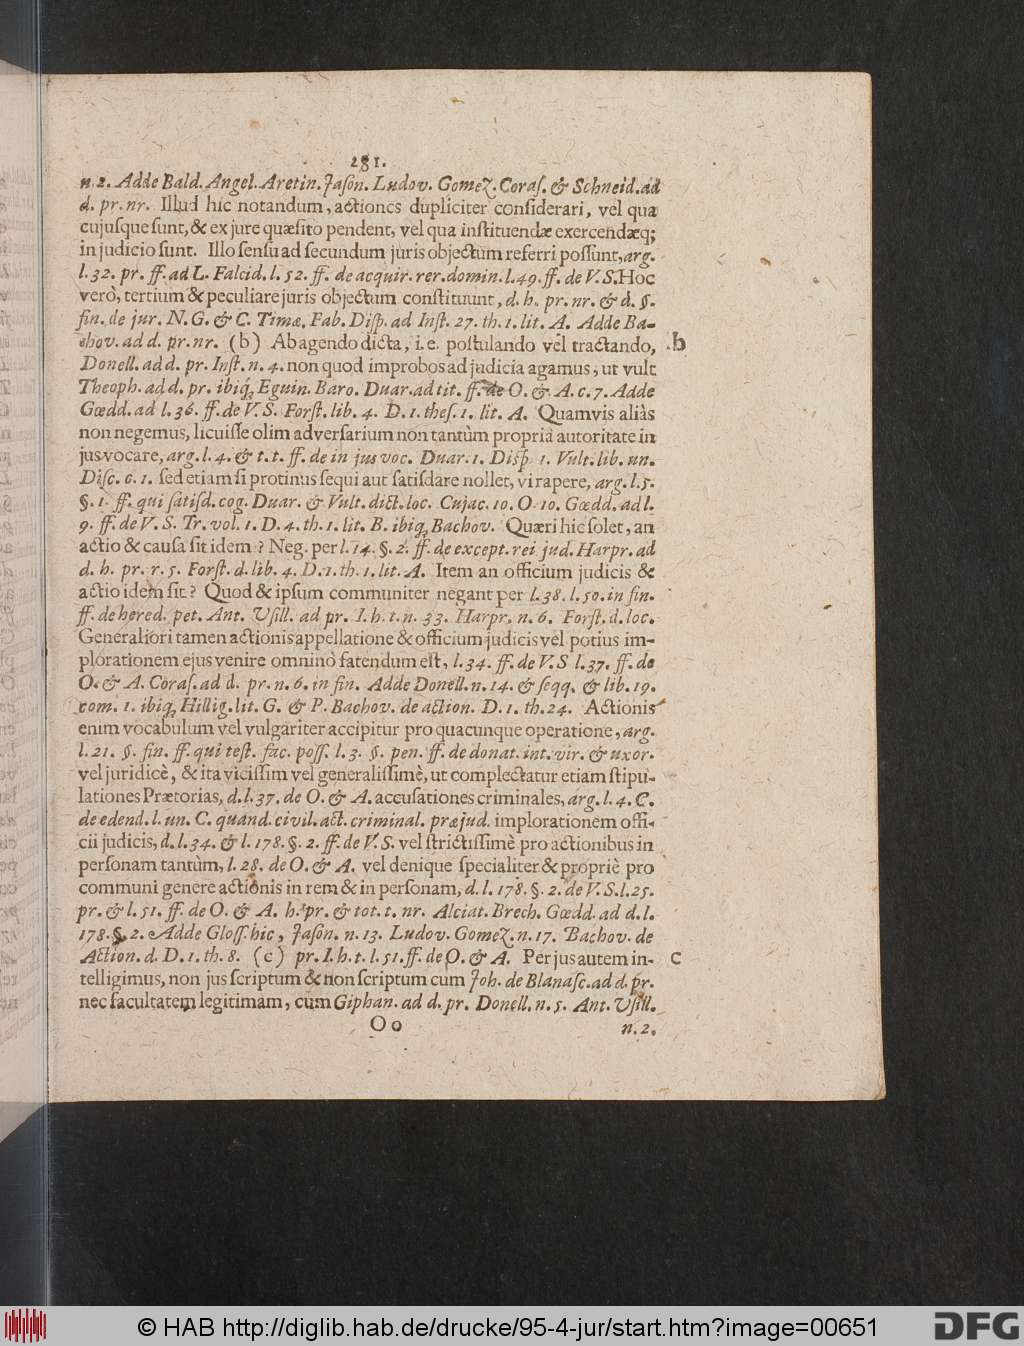 281.
n. 2. Adde Bald. Angel. Aretin. Jaſon. Ludov. Gomez. Coraſ. & Schneid. ad
d. pr. nr. Illud hic notandum, actiones dupliciter conſiderari, vel qua
cujusque ſunt, & ex jure quæſito pendent, vel qua inſtituendæ exercendæq;
in judicio ſunt. Illo ſenſu ad ſecundum juris objectum referri poſſunt, arg.
l. 32. pr. ff. ad L. Falcid. l. 52. ff. de acquir. rer. domin. l. 49. ff. de V. S. Hoc
verò, tertium & peculiare juris objectum conſtituunt, d. h. pr. nr. & d. §.
fin. de jur. N. G. & C. Timæ. Fab. Diſp. ad Inſt. 27. th. 1. lit. A. Adde Ba-
chov. ad d. pr. nr. (b) Ab agendo dicta, i. e. poſtulando vel tractando, b
Donell. ad d. pr. Inſt. n. 4. non quod improbos ad judicia agamus, ut vult
Theoph. ad d. pr. ibiq́; Eguin. Baro. Duar. ad tit. ff. de O. & A. c. 7. Adde
Gœdd. ad l. 36. ff. de V. S. Forſt. lib. 4. D. 1. theſ. 1. lit. A. Quamvis aliàs
non negemus, licuiſſe olim adverſarium non tantùm propriâ autoritate in
jus vocare, arg. l. 4. & t. t. ff. de in jus voc. Duar. 1. Diſp. 1. Vult. lib. un.
Diſc. c. 1. sed etiam ſi protinus ſequi aut ſatisdare nollet, vi rapere, arg. l. 5.
§. 1. ff. qui ſatiſd. cog. Duar. & Vult. dict. loc. Cujac. 10. O. 10. Gœdd. ad l.
9. ff. de V. S. Tr. vol. 1. D. 4. th. 1. lit. B. ibiq́; Bachov. Quæri hic ſolet, an
actio & cauſa ſit idem? Neg. per l. 14. §. 2. ff. de except. rei jud. Harpr. ad
d. h. pr. r. 5. Forſt. d. lib. 4. D. 1. th. 1. lit. A. Item an officium judicis &
actio idem ſit? Quod & ipſum communiter negant per l. 38. l. 50. in fin.
ff. de hered. pet. Ant. Uſill. ad pr. I. h. t. n. 33. Harpr. n. 6. Forſt. d. loc.
Generaliori tamen actionis appellatione & officium judicis vel potius im-
plorationem ejus venire omninò fatendum eſt, l. 34. ff. de V. S l. 37. ff. de
O. & A. Coraſ. ad d. pr. n. 6. in fin. Adde Donell. n. 14. & ſeqq. & lib. 19.
com. 1. ibiq́; Hillig. lit. G. & P. Bachov. de action. D. 1. th. 24. Actionis
enim vocabulum vel vulgariter accipitur pro quacunque operatione, arg.
l. 21. §. fin. ff. qui teſt. fac. poſſ. l. 3. §. pen. ff. de donat. int. vir. & uxor.
vel juridicè, & ita viciſſim vel generaliſſimè, ut complectatur etiam ſtipu-
lationes Prætorias, d. l. 37. de O. & A. accuſationes criminales, arg. l. 4. C.
de edend. l. un. C. quand. civil. act. criminal. præjud. implorationem offi-
cii judicis, d. l. 34. & l. 178. §. 2. ff. de V. S. vel ſtrictiſſimè pro actionibus in
perſonam tantùm, l. 28. de O. & A. vel denique ſpecialiter & propriè pro
communi genere actionis in rem & in perſonam, d. l. 178. §. 2. de V. S. l. 25.
pr. & l. 51. ff. de O. & A. h. pr. & tot. t. nr. Alciat. Brech. Gœdd. ad d. l.
178. §. 2. Adde Gloſſ. hic, Jaſon. n. 13. Ludov. Gomez. n. 17. Bachov. de
Action. d. D. 1. th. 8. (c) pr. I. h. t. l. 51. ff. de O. & A. Per jus autem in- c
telligimus, non jus ſcriptum & non ſcriptum cum Joh. de Blanaſc. ad d. pr.
nec facultatem legitimam, cum Giphan. ad d. pr. Donell. n. 5. Ant. Uſill.
Oo n. 2.
© HAB http://diglib.hab.de/drucke/95-4-jur/start.htm?image=00651
DFG